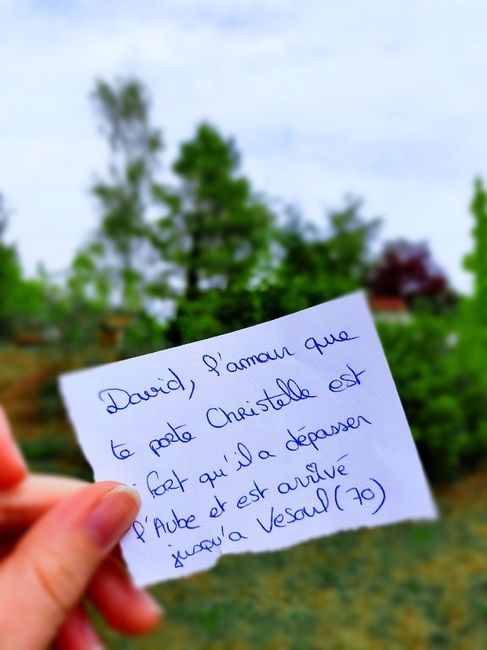 David, l'amour que
te porte Christelle est
fort qu'il a dépasser
l'Aube et est arrivé
jusqu'a Vesoul (70)